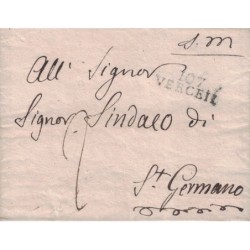 S. M
All' Signor
107
VERCEIL
Signor Sindaco di
St Germano